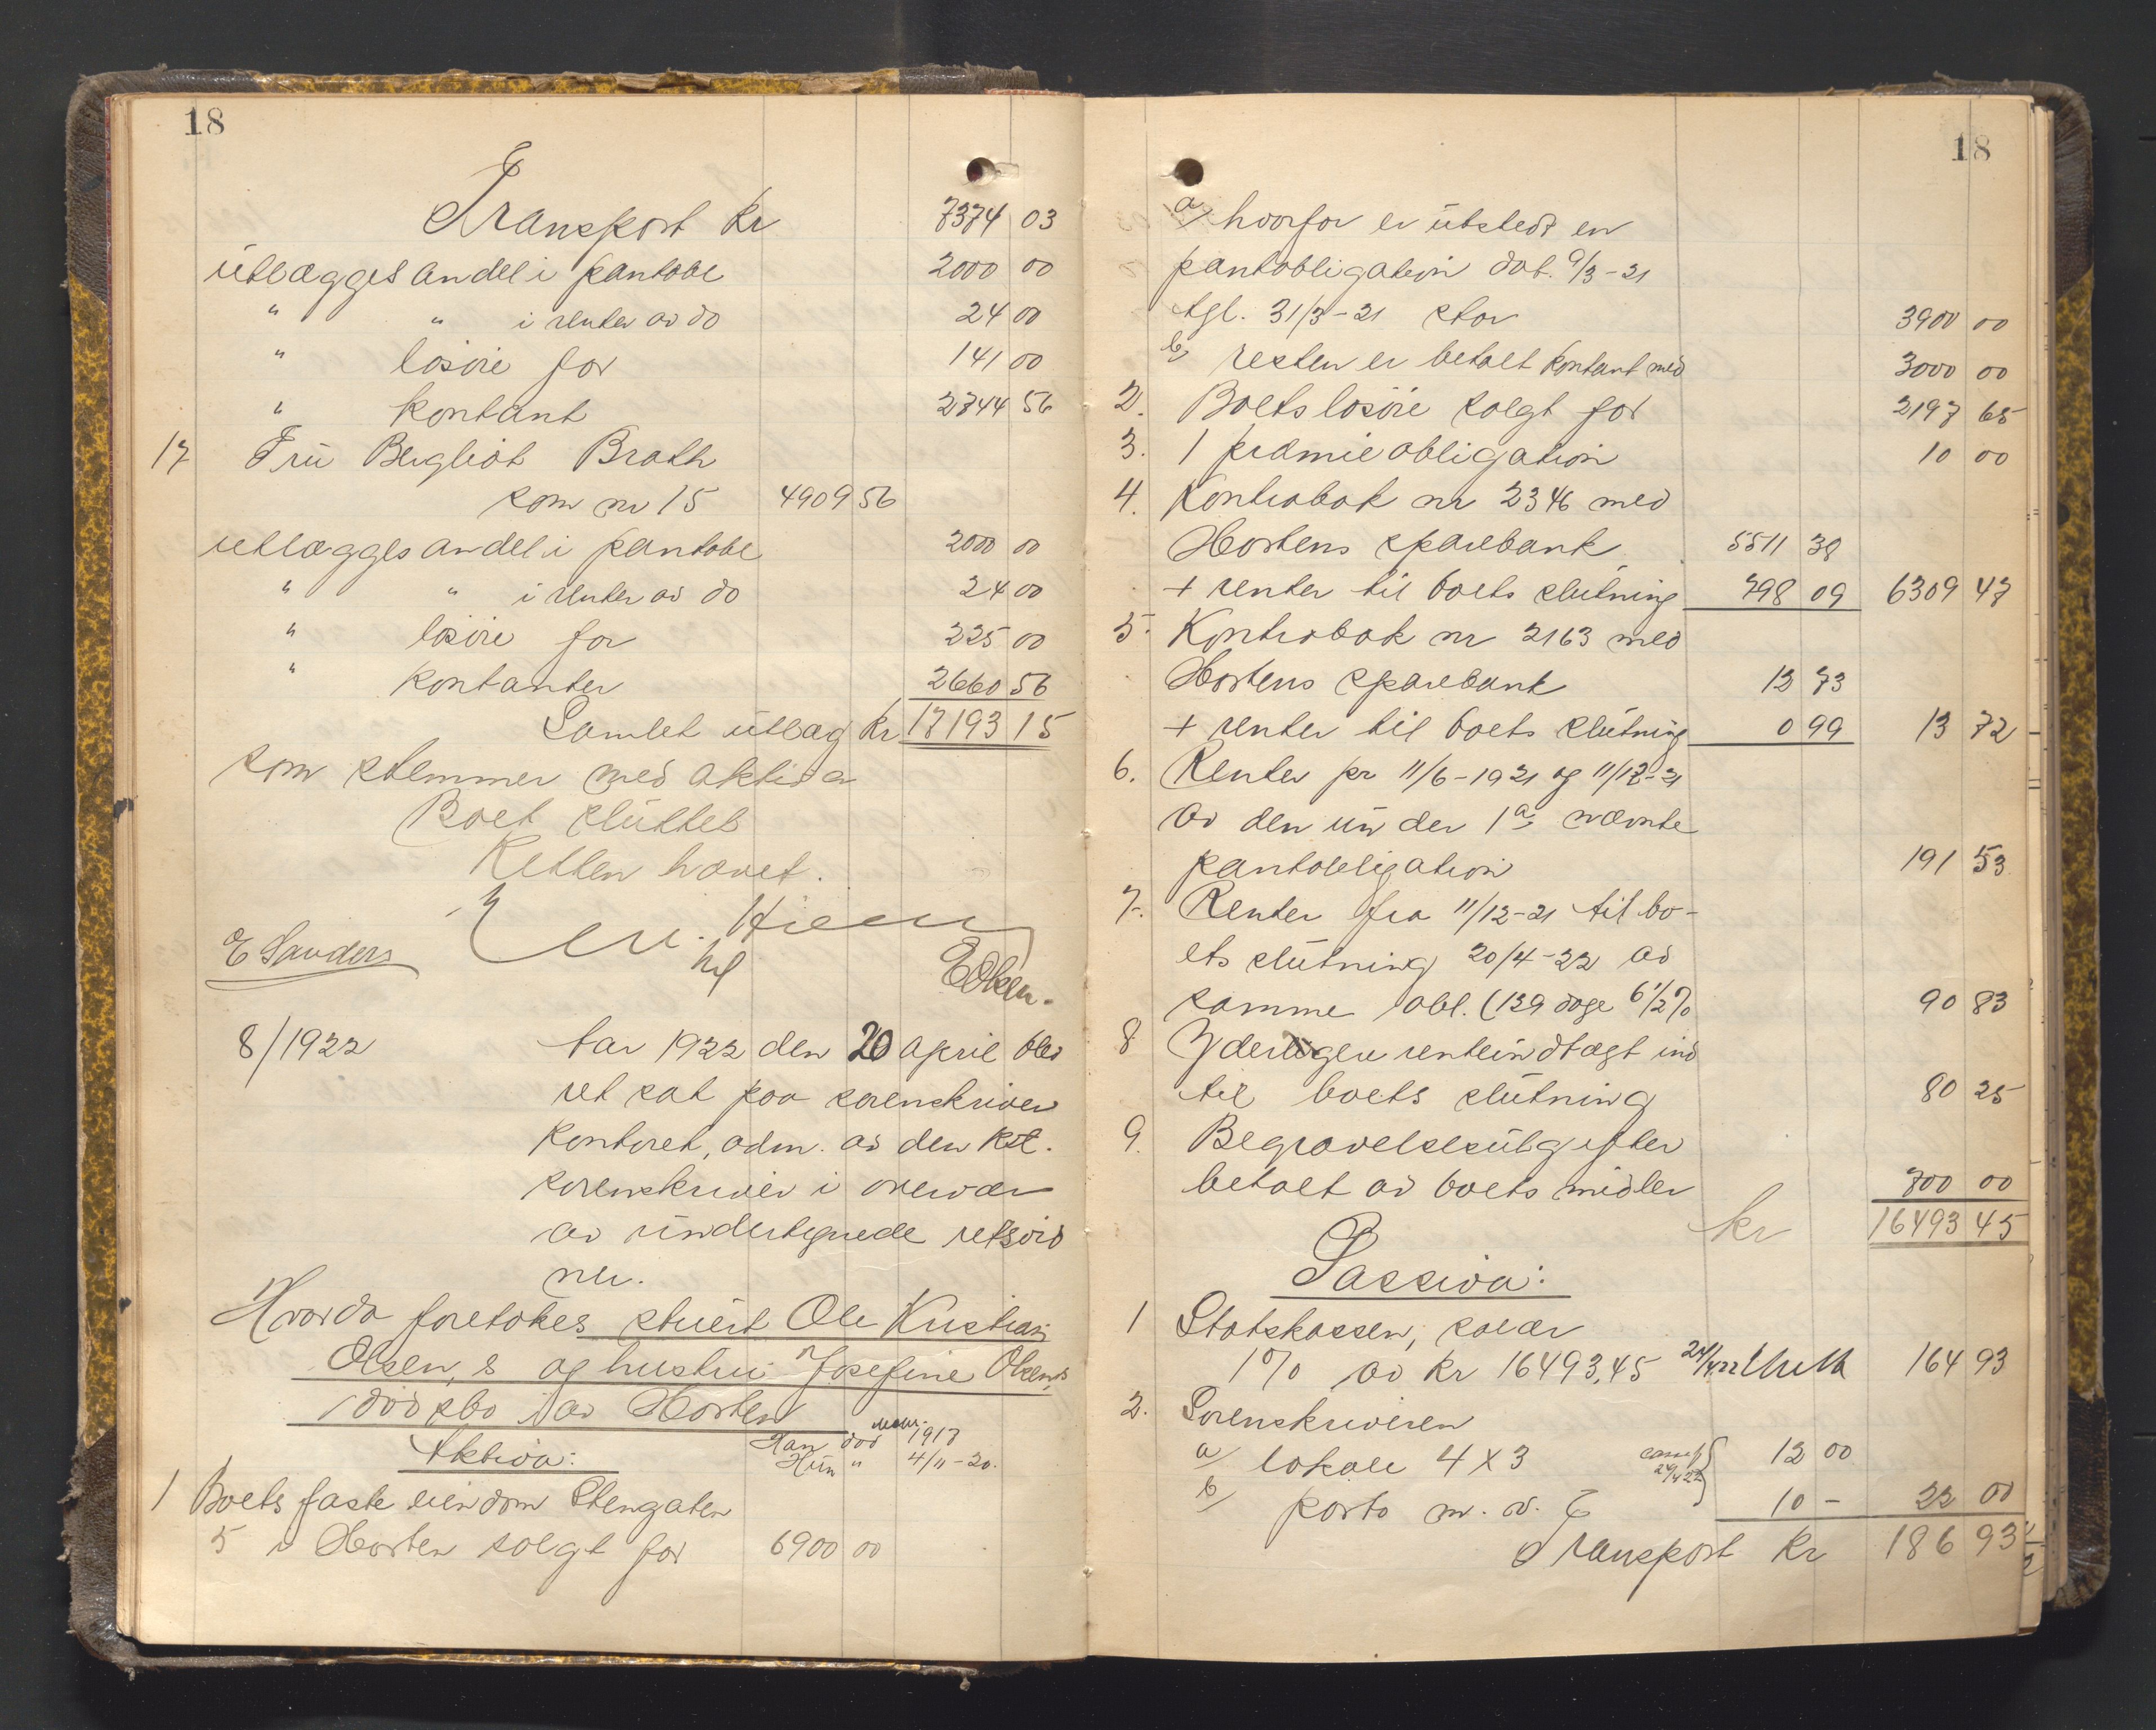 18
Transport kr 7374 03
utlægges andel i pantobl 2000 00
" " i renter av do 24 00
" løsøre for 141 00
" kontant 2744 56
17 Fru Bergliot Brath
som nr 15 4909 56
utlægges andel i pantobl 2000 00
" " i renter av do 24 00
" løsøre for 225 00
" kontanter 2660 56
Samlet utlæg kr 17193 15
som stemmer med aktiva
Boet sluttet
Retten hævet.
E Sanders
hf
E Olsen.
8/1922 Aar 1922 den 20 april blev
ret sat paa sorenskriver
kontoret, adm. av den kst.
sorenskriver i overvær
av undertegnede retsvid
ner.
Hvorda foretokes stuert Ole Kristian
Olsen,s og hustru Josefine Olsens
dødsbo av Horten
Han død 1917
Aktiva: Hun " 4/11-20.
1 Boets faste eiendom Stengaten
5 i Horten solgt for 6900 00
18
a/ hvorfor er utstedt en
pantobligation dat. 9/3-21
tgl. 31/3-21 stor 3900 00
b/ resten er betalt kontant med 3000 00
2. Boets løsøre solgt for 2197 65
3. 1 præmieobligation 10 00
4. Kontrabok nr 2346 med
Hortens sparebank 5511 38
+ renter til boets slutning 798 09 6309 47
5. Kontrabok nr 2163 med
Hortens sparebank 12 73
+ renter til boets slutning 0 99 13 72
6. Renter pr 11/6-1921 og 11/12-21
av den under 1a nævnte
pantobligation 191 53
7. Renter fra 11/12-21 til bo-
ets slutning 20/4-22 av
samme obl. (129 dage 6 1/2 % 90 83
8 Yderligere renteindtægt ind
til boets slutning 80 25
9. Begravelsesutgifter
betalt av boets midler 700 00
kr 16493 45
Passiva:
1 Statskassen, salær
1% av kr 16493,45 24/4 22 164 93
2. Sorenskriveren
a/ lokale 4 x 3 12 00
b/ porto m. v. 10 - 22 00
Transport kr 186 93